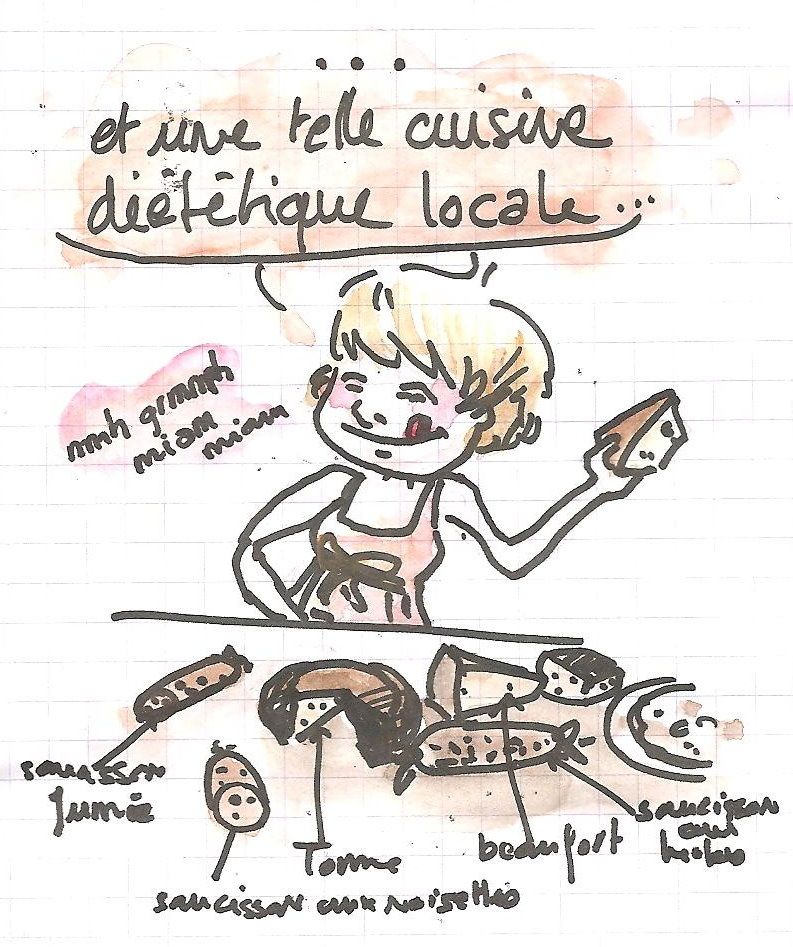 ...
et une telle cuisine
diététique locale...
mmh grmmmh
miam
miam
saucisson
fumé
Tomme
saucisson aux noisettes
beaufort
saucisson
aux